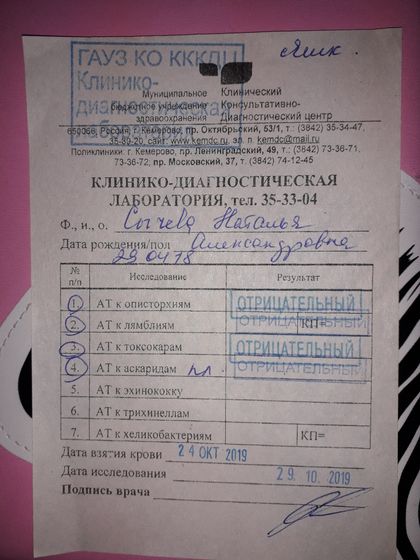 ГАУЗ КО КККДЦ
Клинико-
диагностическая
Муниципальное бюджетное учреждение здравоохранения
Клинический Консультативно-Диагностический центр
650066, Россия, г. Кемерово, пр. Октябрьский, 53/1, т.: (3842) 35-34-47,
35-80-20, сайт: www.kemdc.ru, эл. п. kemdc@mail.ru
Поликлиники: г. Кемерово, пр. Ленинградский, 49, т.: (3842) 73-36-71,
73-36-72, пр. Московский, 37, т. (3842) 74-12-45
КЛИНИКО-ДИАГНОСТИЧЕСКАЯ
ЛАБОРАТОРИЯ, тел. 35-33-04
Ф., и., о. Сычева Наталья
Дата рождения/пол Александровна
29.04.78
№ п/п Исследование Результат
1. АТ к описторхиям ОТРИЦАТЕЛЬНЫЙ
2. АТ к лямблиям ОТРИЦАТЕЛЬНЫЙ КП=
3. АТ к токсокарам ОТРИЦАТЕЛЬНЫЙ
4. АТ к аскаридам ОТРИЦАТЕЛЬНЫЙ
5. АТ к эхинококку
6. АТ к трихинеллам
7. АТ к хеликобактериям КП=
Дата взятия крови 24 ОКТ 2019
Дата исследования 29.10.2019
Подпись врача